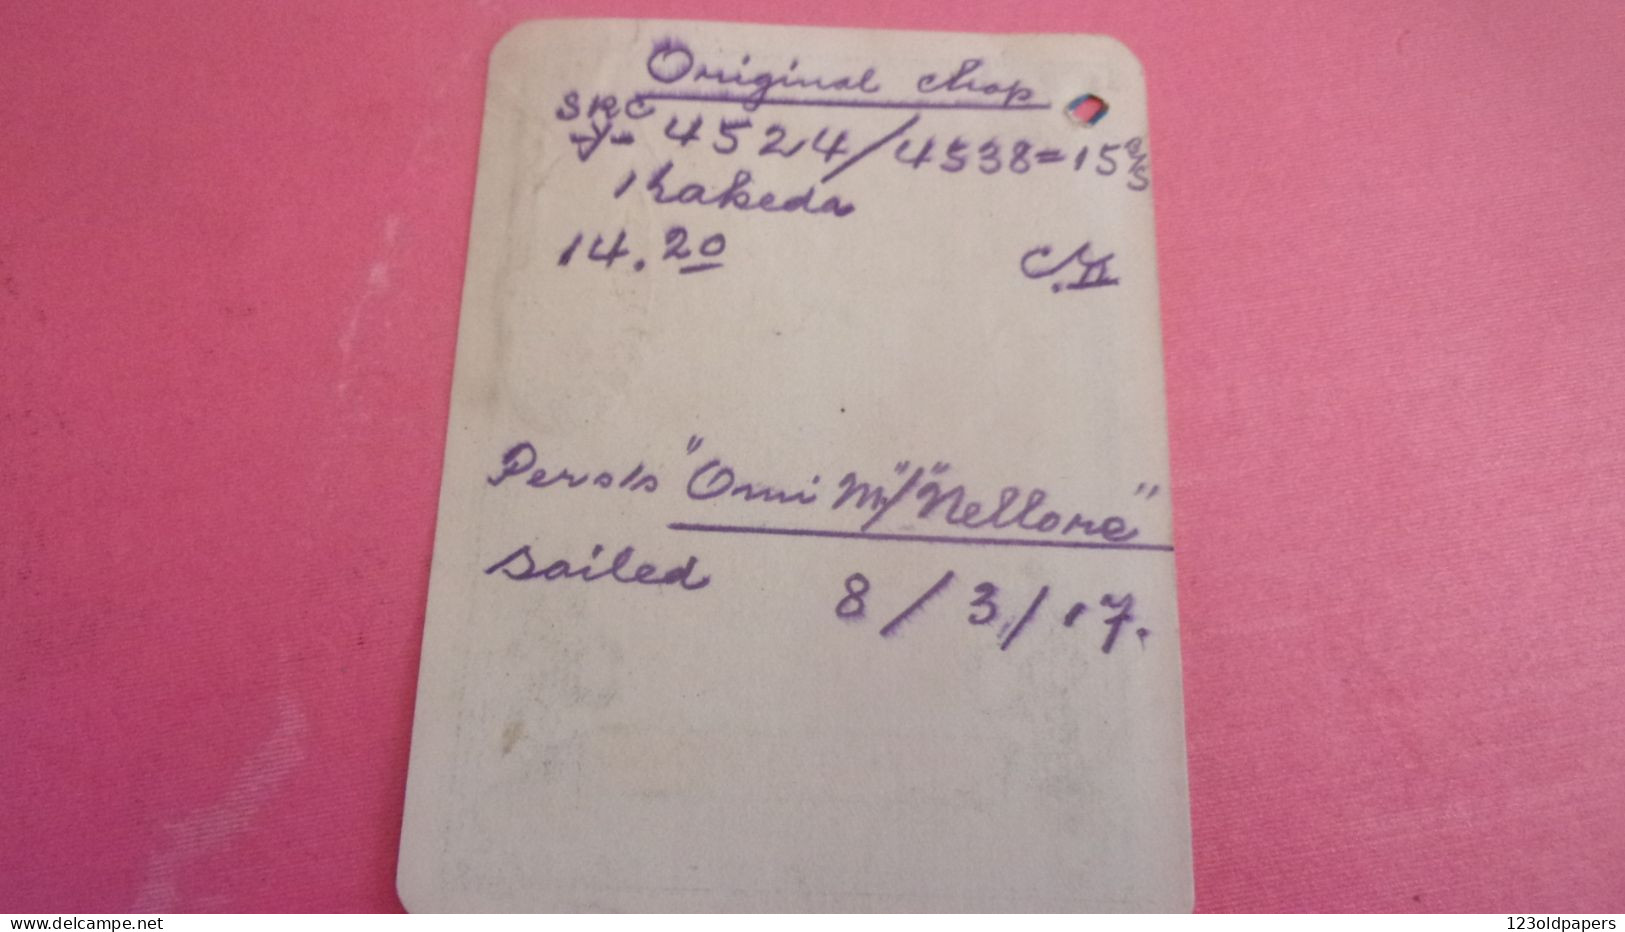 Original chop
SRC
-Y- 4524/4538 = 15 c/s
Kakeda
14.20
Per s/s "Omi M/" "Nellore"
sailed 8/3/17.
123oldpapers.com
123oldpapers